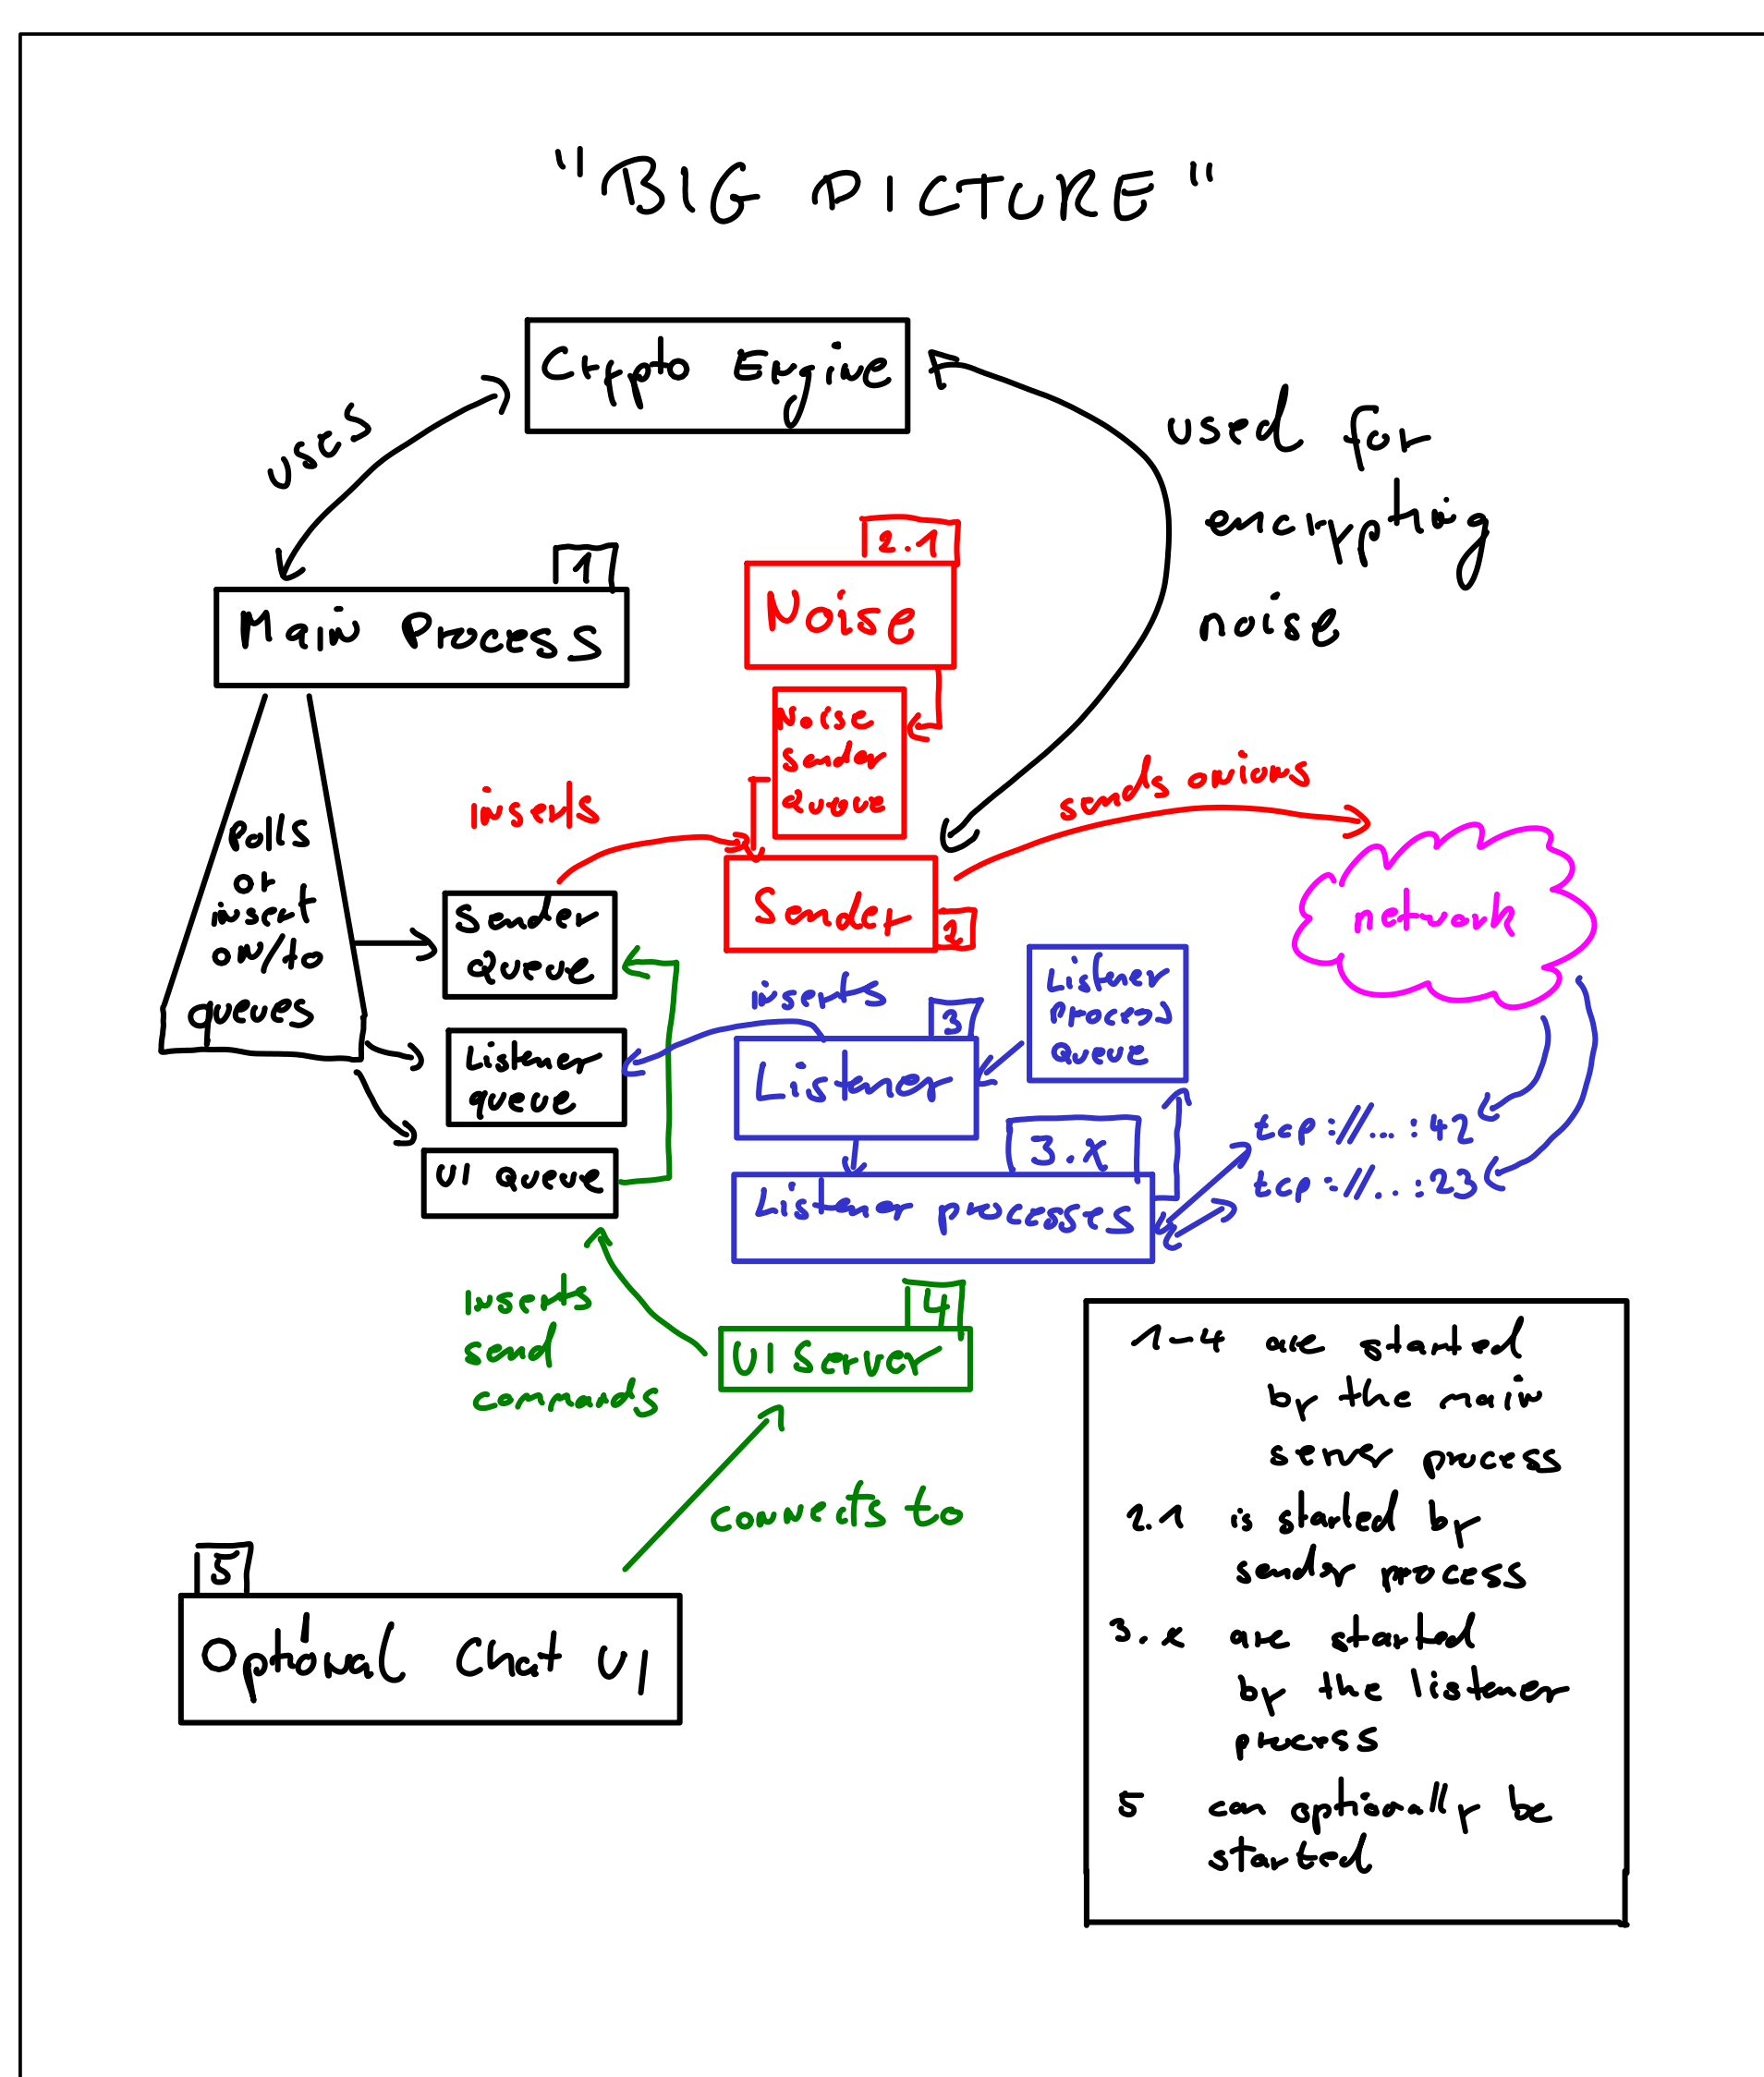 "BIG PICTURE"
Crypto Engine
uses
used for
encrypting
noise
1
Main Process
2.1
Noise
Noise
sender
queue
inserts
sends onions
Polls
or
insert
on/to
queues
Sender
Queue
Sender
2
network
inserts
3
Listener
Process
Queue
Listener
queue
Listener
UI Queue
3.x
Listener processes
tcp://...:42
tcp://...:23
inserts
send
commands
4
UI Server
connects to
5
Optional Chat UI
1-4 are started
by the main
server process
2.1 is started by
sender process
3.x are started
by the listener
process
5 can optionally be
started